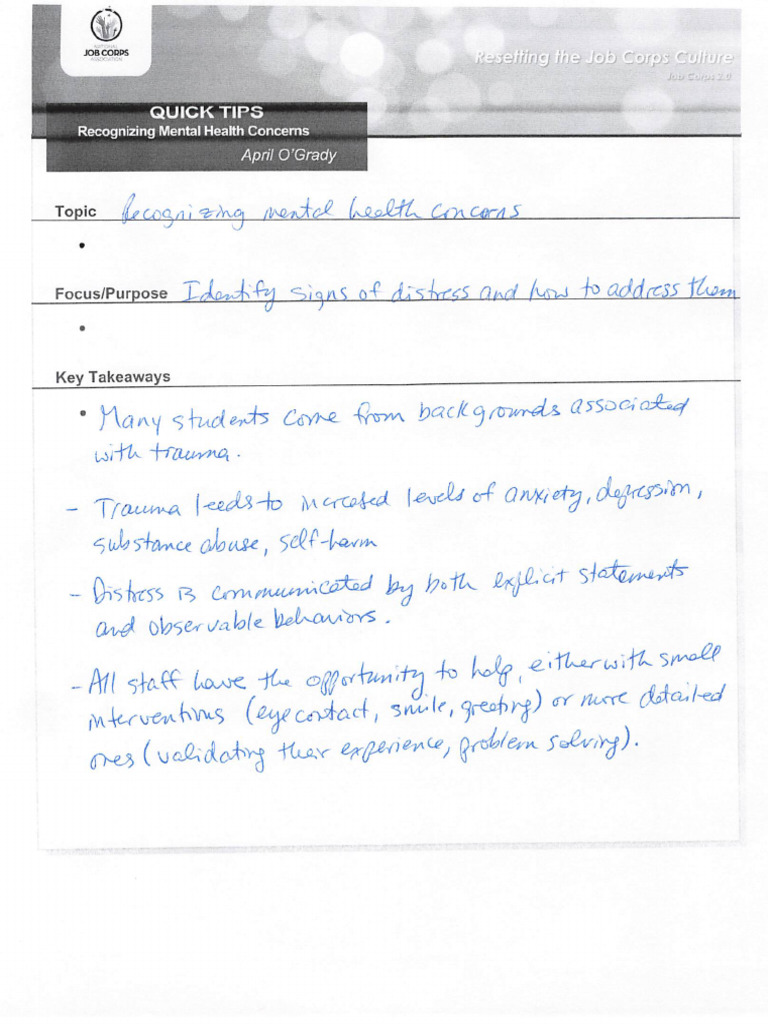 NATIONAL
JOB CORPS
ASSOCIATION
Resetting the Job Corps Culture
Job Corps 2.0
QUICK TIPS
Recognizing Mental Health Concerns
April O'Grady
Topic Recognizing mental health concerns
•
Focus/Purpose Identify signs of distress and how to address them
•
Key Takeaways
• Many students come from backgrounds associated
with trauma.
- Trauma leads to increased levels of anxiety, depression,
substance abuse, self-harm
- Distress is communicated by both explicit statements
and observable behaviors.
- All staff have the opportunity to help, either with small
interventions (eye contact, smile, greeting) or more detailed
ones (validating their experience, problem solving).